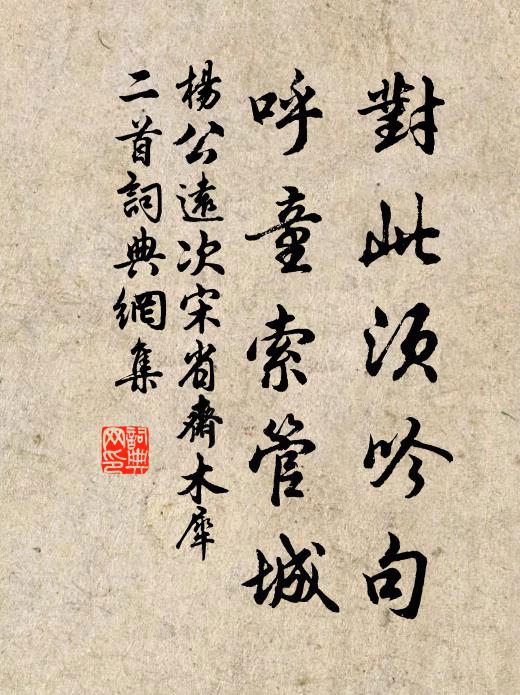 對此須吟句
呼童索管城
楊公遠次宋省齋木犀
二首詞典網集
詞典网印